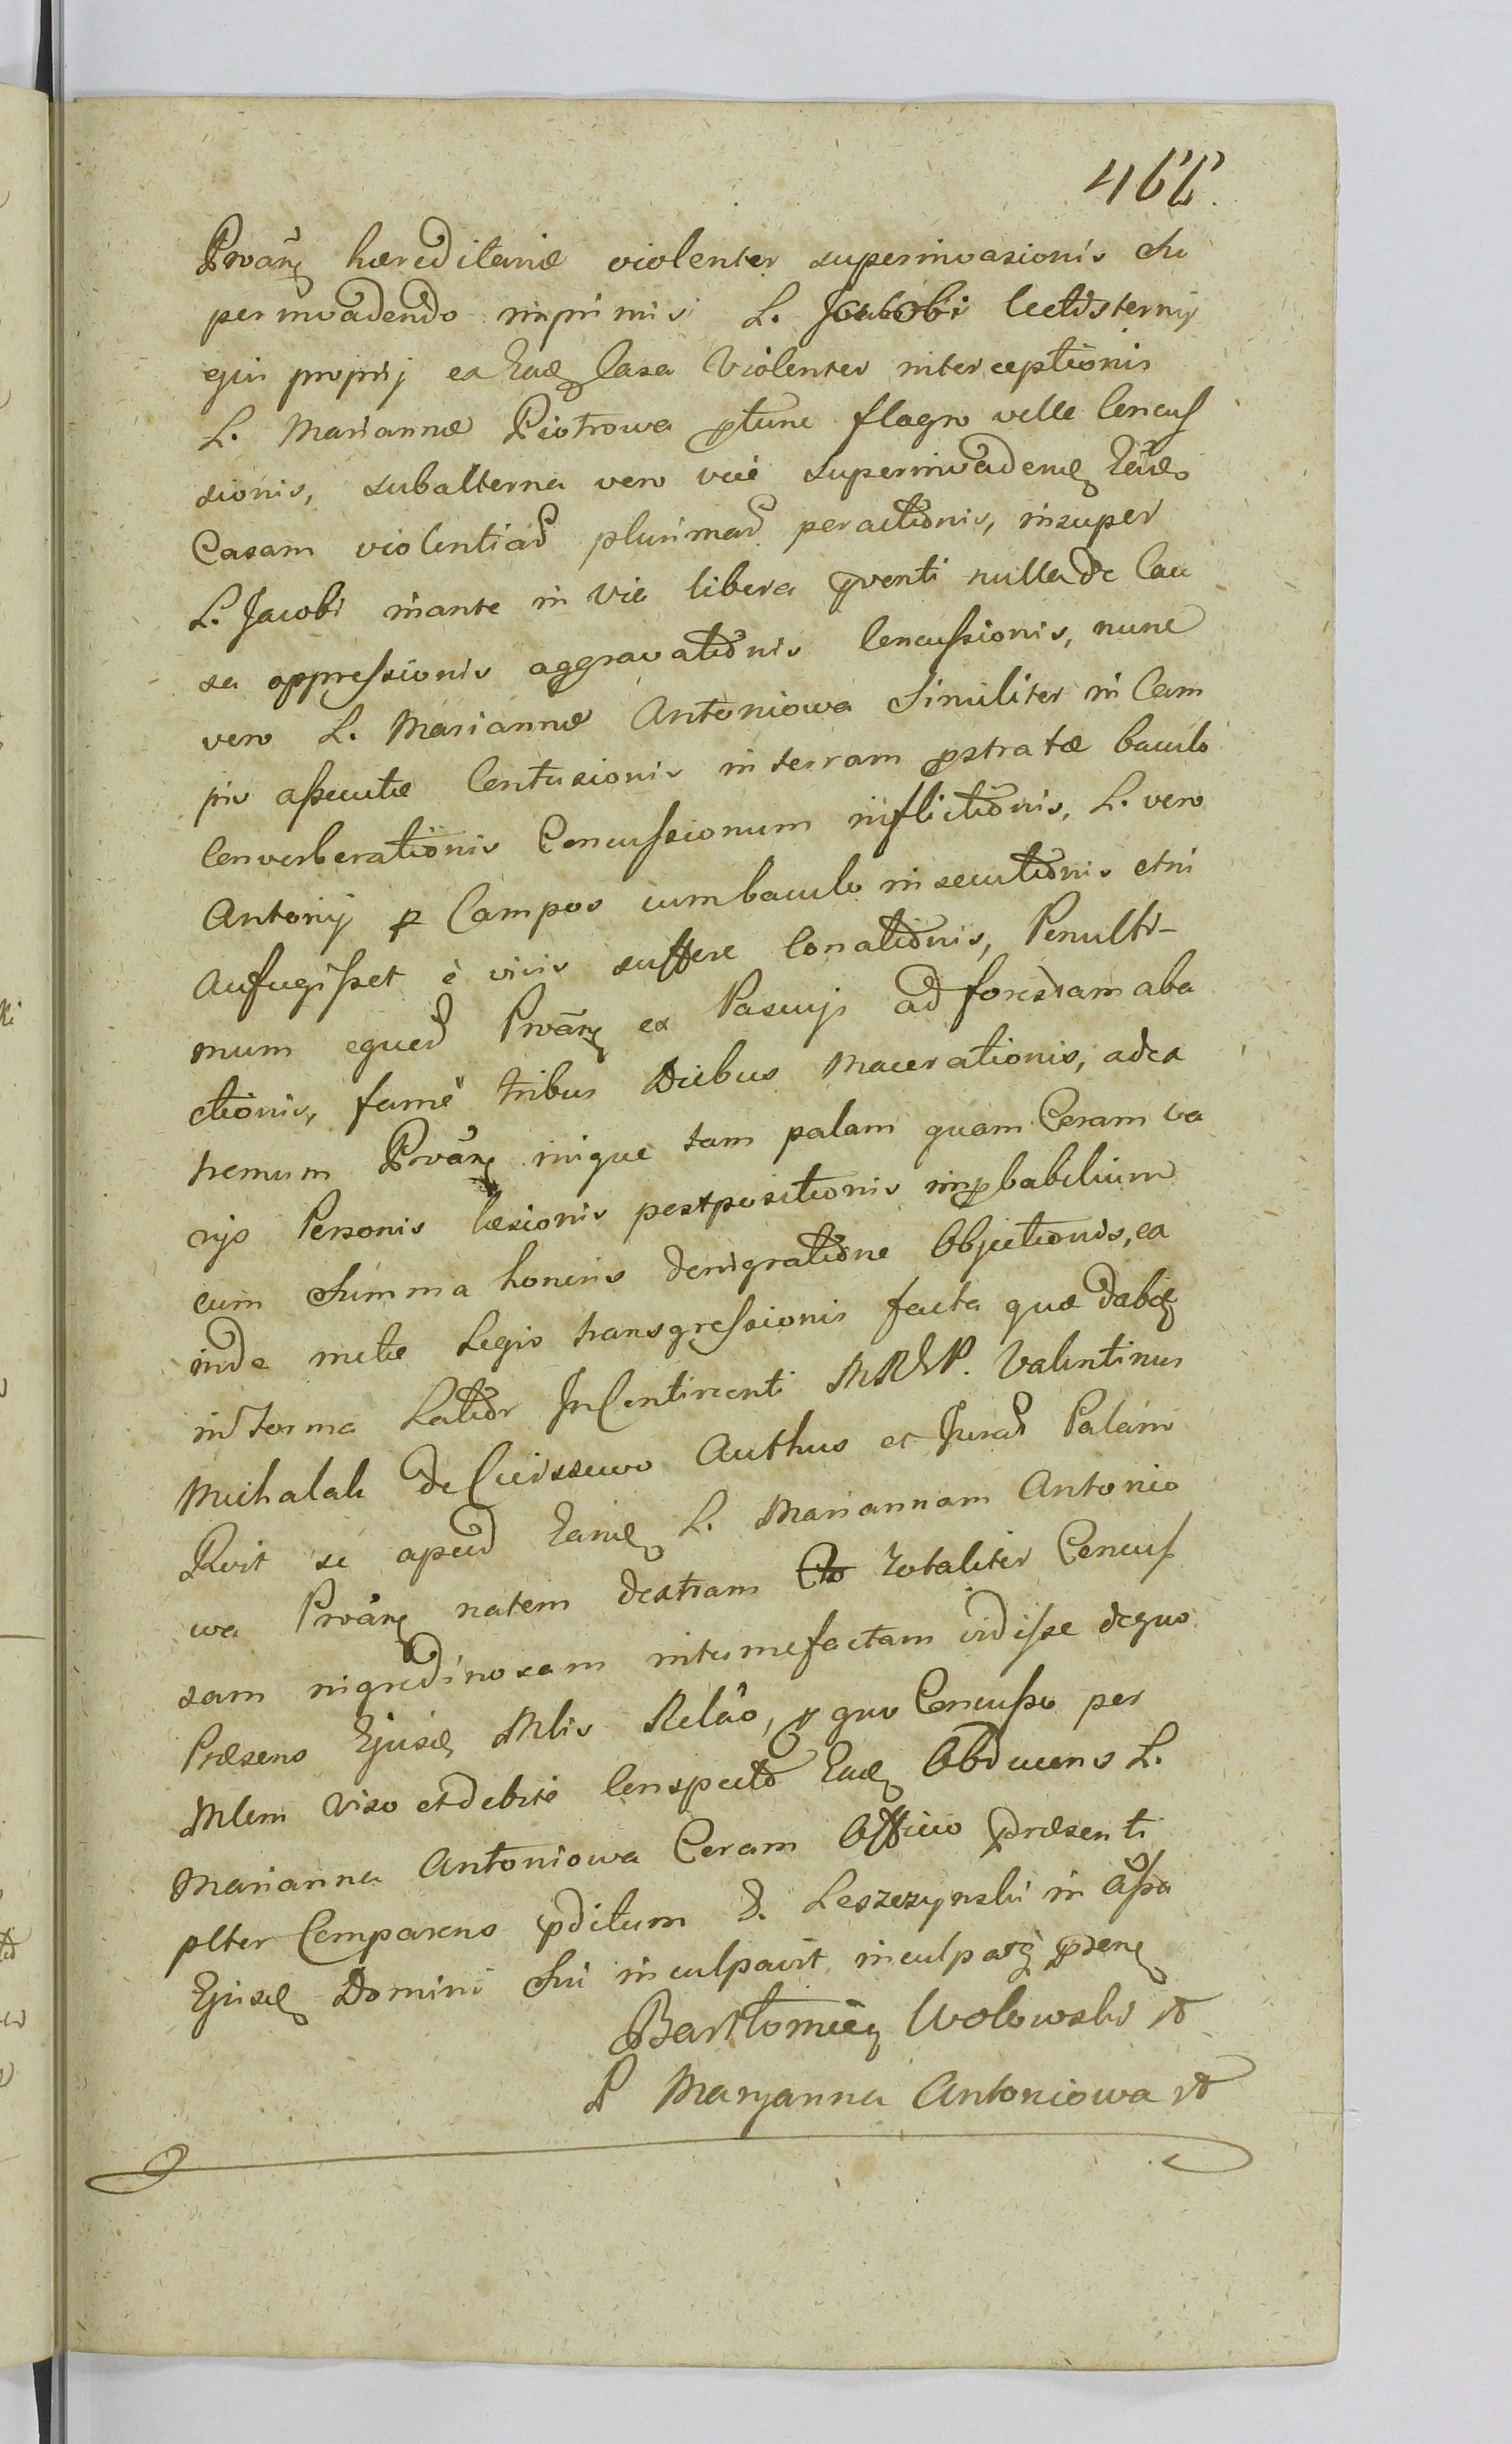 466.
Proãrũ hæreditariæ violenter superinvasionis Su
perinvadendo inprimis L. Jacobi lectisternij
ejus proprij ex Eadẽ Casa Violenter interceptionis
L. Mariannæ Piotrowa ptunc flagro velle Concus
sionis, subalterna vero vice superinvadenẽ Eãdẽ
Casam violentiaru plurimaru peractionis, insuper
L. Jacobi inante in via libera pventi nulla de Cau
sa oppressionis aggravationis Concussionis, nunc
vero L. Mariannæ Antoniowa Similiter in Cam
pis assecutæ Contusionis in terram pstratæ baculo
Converberationis Concussionum inflictionis, L. vero
Antonij p Campos cum baculo insecutionis et ni
Aufugisset è vivis suffere Conationis, Penulti-
mum equeru Proãrũ ex Pascuis ad forestam aba
ctionis, famẽ tribus Diebus Macerationis, ad ex
tremum Proãrũ inique tam palam quam Coram va
rijs Personis læsionis postpositionis impbabilium
cum Summa honoris denigratione Objectionis, ex
inde metæ Legis transgressionis facta quæ dabit
in Termo Latior In Continenti MRP. Valentinus
Michalak de Authus et Juratu Palam
Rvit se apud Eandẽ L. Mariannam Antonio
wa Proãrũ natem dextram totaliter Concus
sam nigredinosam intumefactam vidisse de quo
Præsens Ejusdẽ Mlis Relão, p quo Concusso per
Mlem viso et debite Conspecto Eadẽ Obducens L.
Marianna Antoniowa Coram Officio præsenti
plter Comparens pditum D. Leszczynski in Assa
Ejusdẽ Domini Sui inculpavit inculpatq prenẽ
Bartłomiej Wolowski
P Maryanna Antoniowa